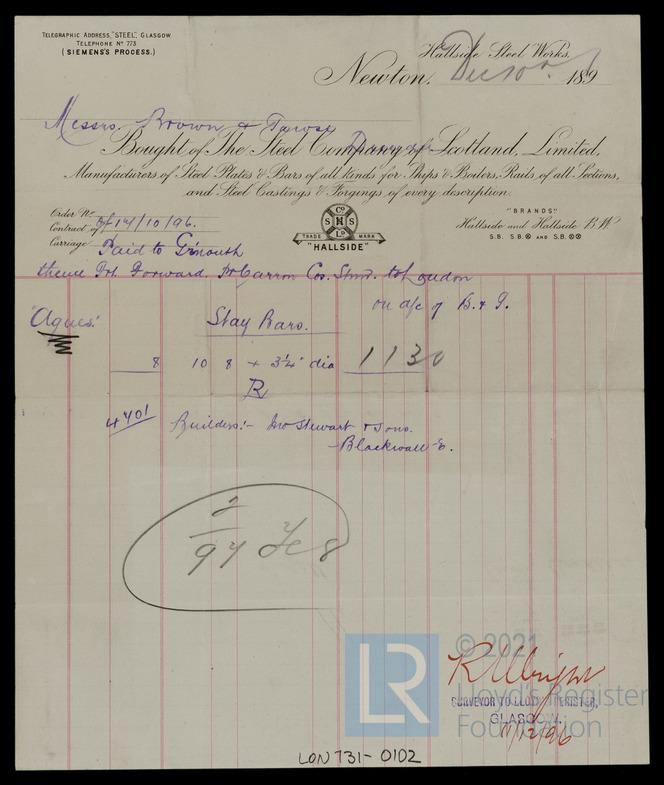 TELEGRAPHIC ADDRESS, "STEEL", GLASGOW
TELEPHONE No 773
(SIEMENS'S PROCESS.)
Hallside Steel Works,
Newton, Dec 10th 1896
Messrs. Brown &
Bought of The Steel Company of Scotland, Limited,
Manufacturers of Steel Plates & Bars of all kinds for Ships & Boilers, Rails of all Sections,
and Steel Castings & Forgings of every description.
Order No
Contract of 14/10/96.
Carriage Paid to G'mouth
"BRANDS"
Hallside and Hallside B W
S.B. S.B. AND S.B.
Co
S H S
Ld
TRADE MARK
"HALLSIDE"
thence Pr. Forward, Pr Carron Cos. Stmr. to London
on a/c of B. & T.
"Agnes."
Stay Bars.
8 10 8 + 3¼" dia 1130
R
4401 Builders:- Jno Stewart & Sons.
Blackwall E.
© 2021
LR
Lloyd's Register
Foundation
SURVEYOR TO LLOYD'S REGISTER,
GLASGOW.
11/12/96
LON 731-0102